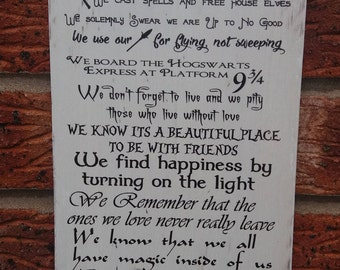 We cast spells and free house elves
We solemnly Swear we are Up to No Good
We use our for flying, not sweeping
We board the Hogswarts
Express at Platform 9 3/4
We don't forget to live and we pity
those who live without love
WE KNOW ITS A BEAUTIFUL PLACE
TO BE WITH FRIENDS
We find happiness by
turning on the light
We Remember that the
ones we love never really leave
We know that we all
have magic inside of us